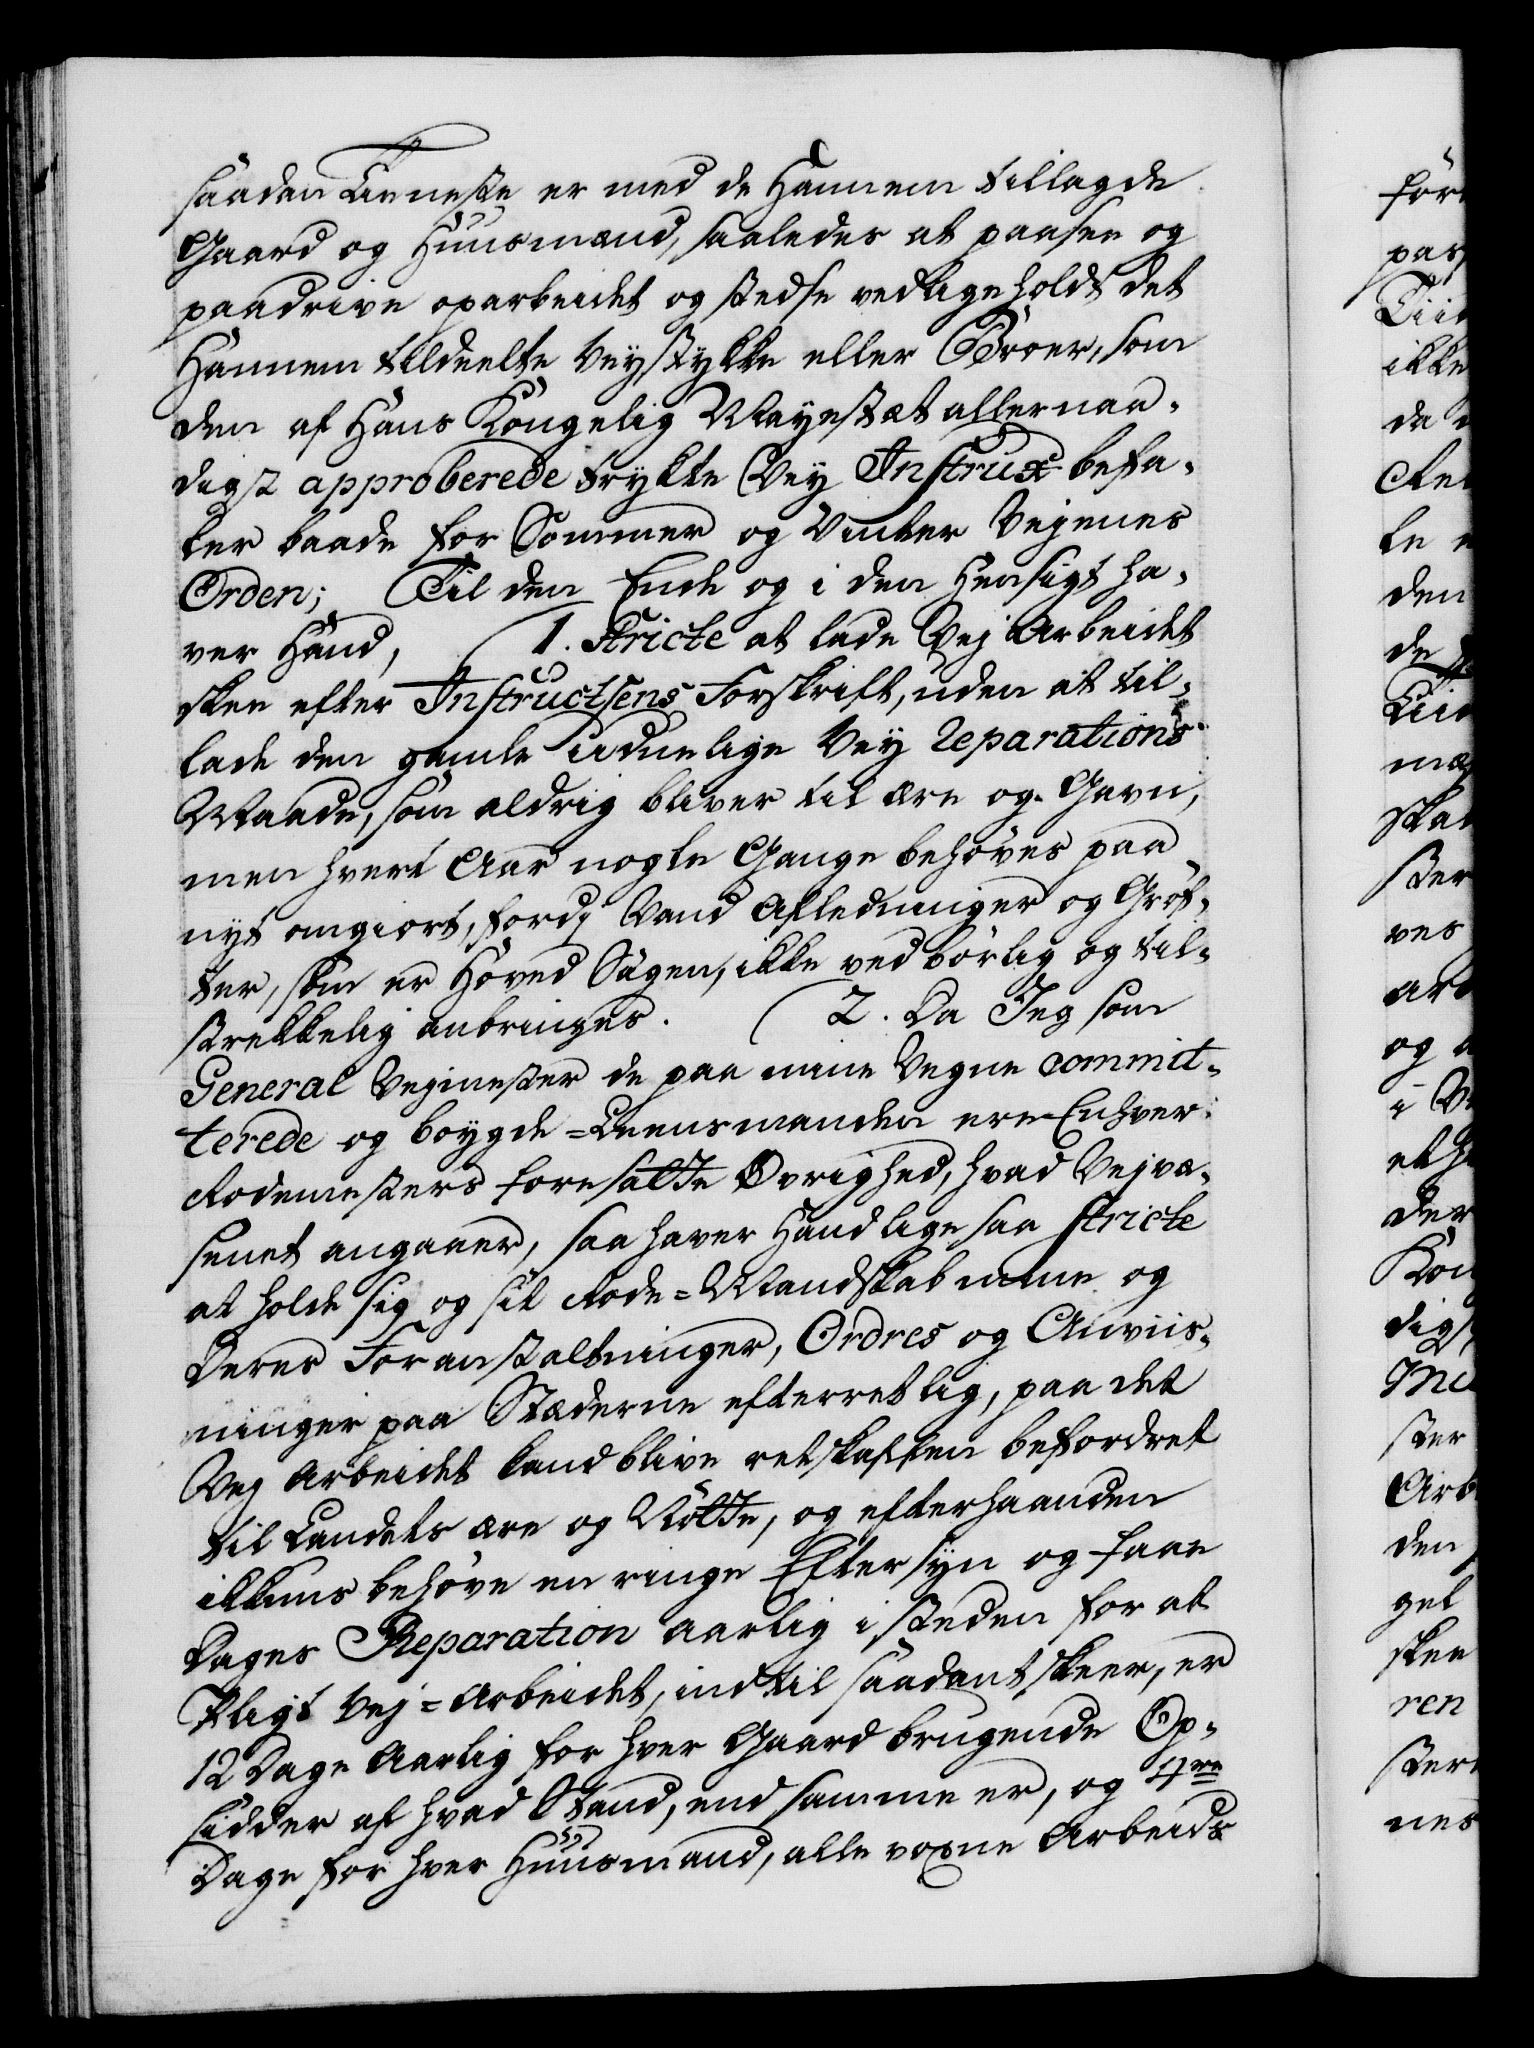 saadan Tieneste er med de Hannem tillagde
Gaard og Huusmænd, saaledes at paasee og
paadrive oparbeidet og stedse vedligeholdt det
Hannem tildeelte Veystykke eller Broer, som
den af Hans Kongelig Mayestæt allernaa-
digst approberede trykte Vey Instrux befa-
ler baade for Sommer og Vinter Vejenes
Orden; Til den Ende og i den Hensigt ha-
ver Hand, 1. Stricte at lade Vej Arbeidet
skee efter Instructsens Forskrift, uden at til-
lade den gamle uduelige Vey Reparations
Maade, som aldrig bliver til ære og Gavn,
men hvert Aar nogle Gange behøves paa
nyt omgiort, fordj Vand Afledninger og Grøf-
ter, som er Hoved Sagen, ikke vedbørlig og til-
strekkelig anbringes. 2. Da Jeg som
General Vejmester de paa mine Vegne commit-
terede og boygde=Leensmanden ere Enhver
Rodemesters foresatte Øvrighed, hvad Vejvæ-
senet angaaer, saa haver Hand ligesaa stricte
at holde sig og sit Rode=Mandskab mine og
Deres Foranstaltninger, Ordres og Anviis-
ninger paa Stæderne efterretlig, paa det
Vej Arbeidet kand blive retskaffen befordret
til Landets ære og Nøtte, og efterhaanden
ikkuns behøve en ringe Eftersyn og faae
Dages Reparation aarlig i steden for at
Pligt Vej=Arbeidet, indtil saadant skeer, er
12 Dage Aarlig for hver Gaard brugende Op-
sidder af hvad Stand, end samme er, og 4re
Dage for hver Huusmand, alle voxne Arbeids